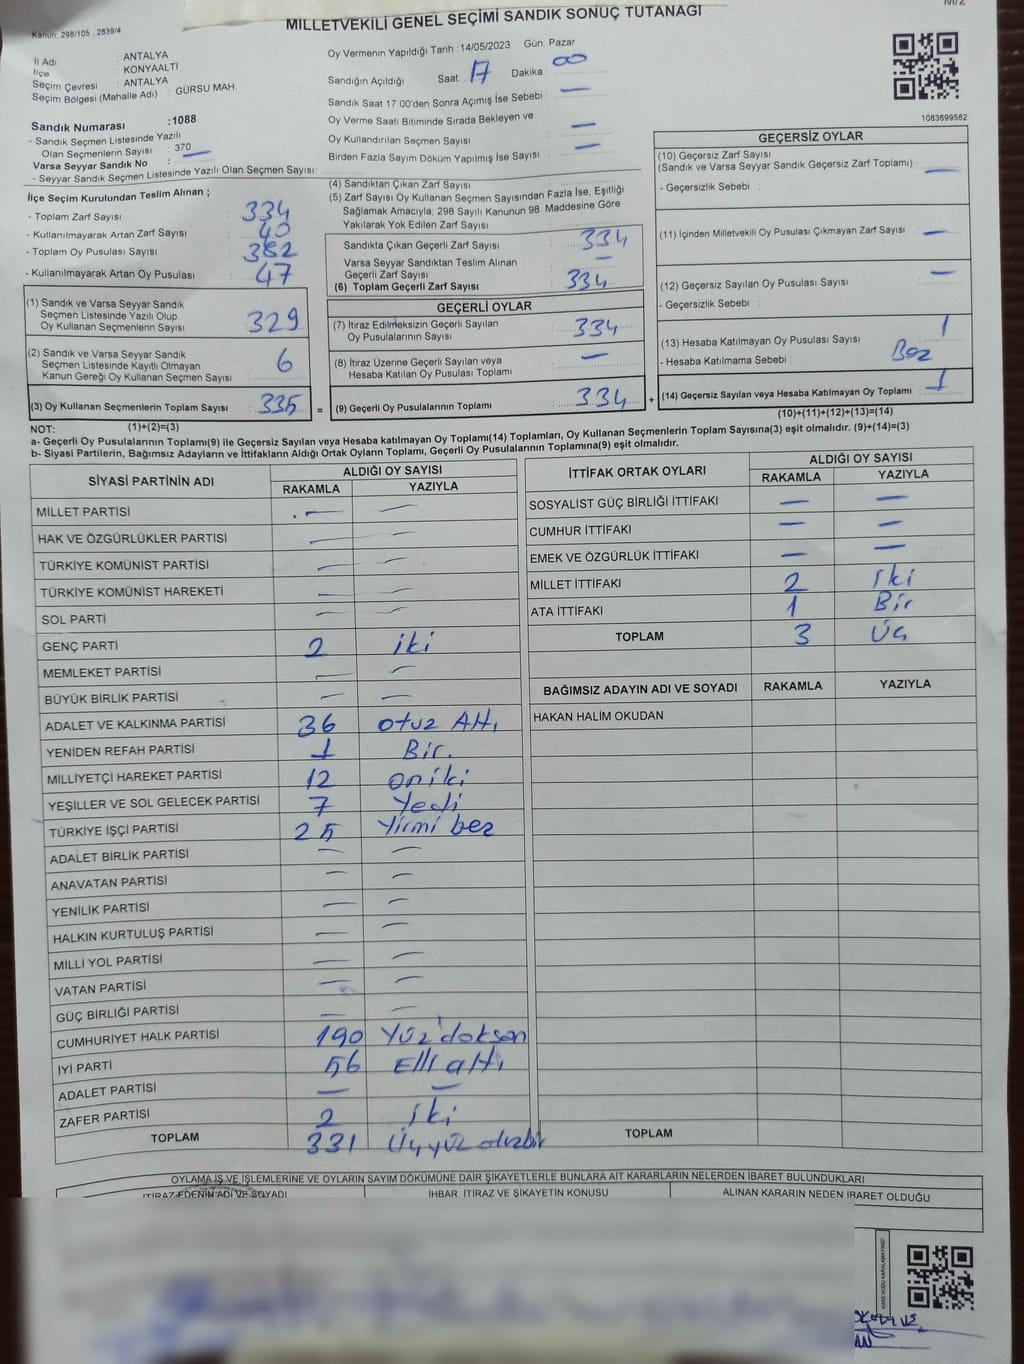 MİLLETVEKİLİ GENEL SEÇİMİ SANDIK SONUÇ TUTANAĞI
Kanun: 298/105 , 2839/4
İl Adı : ANTALYA
İlçe : KONYAALTI
Seçim Çevresi : ANTALYA
Seçim Bölgesi (Mahalle Adı) : GÜRSU MAH.
Oy Vermenin Yapıldığı Tarih : 14/05/2023 Gün: Pazar
Sandığın Açıldığı Saat: 17 Dakika : 00
Sandık Saat 17:00'den Sonra Açılmış İse Sebebi : —
Oy Verme Saati Bitiminde Sırada Bekleyen ve
Oy Kullandırılan Seçmen Sayısı : —
Birden Fazla Sayım Döküm Yapılmış İse Sayısı : —
1083699582
Sandık Numarası :1088
- Sandık Seçmen Listesinde Yazılı
Olan Seçmenlerin Sayısı : 370
Varsa Seyyar Sandık No : —
- Seyyar Sandık Seçmen Listesinde Yazılı Olan Seçmen Sayısı:
İlçe Seçim Kurulundan Teslim Alınan ;
- Toplam Zarf Sayısı : 334
- Kullanılmayarak Artan Zarf Sayısı : 40
- Toplam Oy Pusulası Sayısı : 382
- Kullanılmayarak Artan Oy Pusulası : 47
(1) Sandık ve Varsa Seyyar Sandık
Seçmen Listesinde Yazılı Olup
Oy Kullanan Seçmenlerin Sayısı : 329
(2) Sandık ve Varsa Seyyar Sandık
Seçmen Listesinde Kayıtlı Olmayan
Kanun Gereği Oy Kullanan Seçmen Sayısı : 6
(3) Oy Kullanan Seçmenlerin Toplam Sayısı : 335
(1)+(2)=(3)
(4) Sandıktan Çıkan Zarf Sayısı :
(5) Zarf Sayısı Oy Kullanan Seçmen Sayısından Fazla İse, Eşitliği
Sağlamak Amacıyla; 298 Sayılı Kanunun 98. Maddesine Göre
Yakılarak Yok Edilen Zarf Sayısı :
Sandıkta Çıkan Geçerli Zarf Sayısı : 334
Varsa Seyyar Sandıktan Teslim Alınan
Geçerli Zarf Sayısı : —
(6) Toplam Geçerli Zarf Sayısı : 334
GEÇERLİ OYLAR
(7) İtiraz Edilmeksizin Geçerli Sayılan
Oy Pusulalarının Sayısı : 334
(8) İtiraz Üzerine Geçerli Sayılan veya
Hesaba Katılan Oy Pusulası Toplamı : —
= (9) Geçerli Oy Pusulalarının Toplamı : 334
GEÇERSİZ OYLAR
(10) Geçersiz Zarf Sayısı
(Sandık ve Varsa Seyyar Sandık Geçersiz Zarf Toplamı) : —
- Geçersizlik Sebebi :
(11) İçinden Milletvekili Oy Pusulası Çıkmayan Zarf Sayısı : —
(12) Geçersiz Sayılan Oy Pusulası Sayısı : —
- Geçersizlik Sebebi :
(13) Hesaba Katılmayan Oy Pusulası Sayısı : 1
- Hesaba Katılmama Sebebi : Boz
+ (14) Geçersiz Sayılan veya Hesaba Katılmayan Oy Toplamı : 1
(10)+(11)+(12)+(13)=(14)
NOT:
a- Geçerli Oy Pusulalarının Toplamı(9) ile Geçersiz Sayılan veya Hesaba katılmayan Oy Toplamı(14) Toplamları, Oy Kullanan Seçmenlerin Toplam Sayısına(3) eşit olmalıdır. (9)+(14)=(3)
b- Siyasi Partilerin, Bağımsız Adayların ve İttifakların Aldığı Ortak Oyların Toplamı, Geçerli Oy Pusulalarının Toplamına(9) eşit olmalıdır.
SİYASİ PARTİNİN ADI ALDIĞI OY SAYISI
RAKAMLA YAZIYLA
MİLLET PARTİSİ — —
HAK VE ÖZGÜRLÜKLER PARTİSİ — —
TÜRKİYE KOMÜNİST PARTİSİ — —
TÜRKİYE KOMÜNİST HAREKETİ — —
SOL PARTİ — —
GENÇ PARTİ 2 iki
MEMLEKET PARTİSİ — —
BÜYÜK BİRLİK PARTİSİ — —
ADALET VE KALKINMA PARTİSİ 36 otuz Altı
YENİDEN REFAH PARTİSİ 1 Bir.
MİLLİYETÇİ HAREKET PARTİSİ 12 oniki
YEŞİLLER VE SOL GELECEK PARTİSİ 7 Yedi
TÜRKİYE İŞÇİ PARTİSİ 25 Yirmi bez
ADALET BİRLİK PARTİSİ — —
ANAVATAN PARTİSİ — —
YENİLİK PARTİSİ — —
HALKIN KURTULUŞ PARTİSİ — —
MİLLİ YOL PARTİSİ — —
VATAN PARTİSİ — —
GÜÇ BİRLİĞİ PARTİSİ — —
CUMHURİYET HALK PARTİSİ 190 Yüz doksan
İYİ PARTİ 56 Elli altı
ADALET PARTİSİ — —
ZAFER PARTİSİ 2 İki
TOPLAM 331 Üçyüz otuzbir
İTTİFAK ORTAK OYLARI ALDIĞI OY SAYISI
RAKAMLA YAZIYLA
SOSYALİST GÜÇ BİRLİĞİ İTTİFAKI — —
CUMHUR İTTİFAKI — —
EMEK VE ÖZGÜRLÜK İTTİFAKI — —
MİLLET İTTİFAKI 2 İki
ATA İTTİFAKI 1 Bir
TOPLAM 3 Üç
BAĞIMSIZ ADAYIN ADI VE SOYADI RAKAMLA YAZIYLA
HAKAN HALİM OKUDAN
TOPLAM
OYLAMA İŞ VE İŞLEMLERİNE VE OYLARIN SAYIM DÖKÜMÜNE DAİR ŞİKAYETLERLE BUNLARA AİT KARARLARIN NELERDEN İBARET BULUNDUKLARI
İTİRAZ EDENİN ADI VE SOYADI İHBAR, İTİRAZ VE ŞİKAYETİN KONUSU ALINAN KARARIN NEDEN İBARET OLDUĞU
KARE KODU KARALAMAYINIZ!